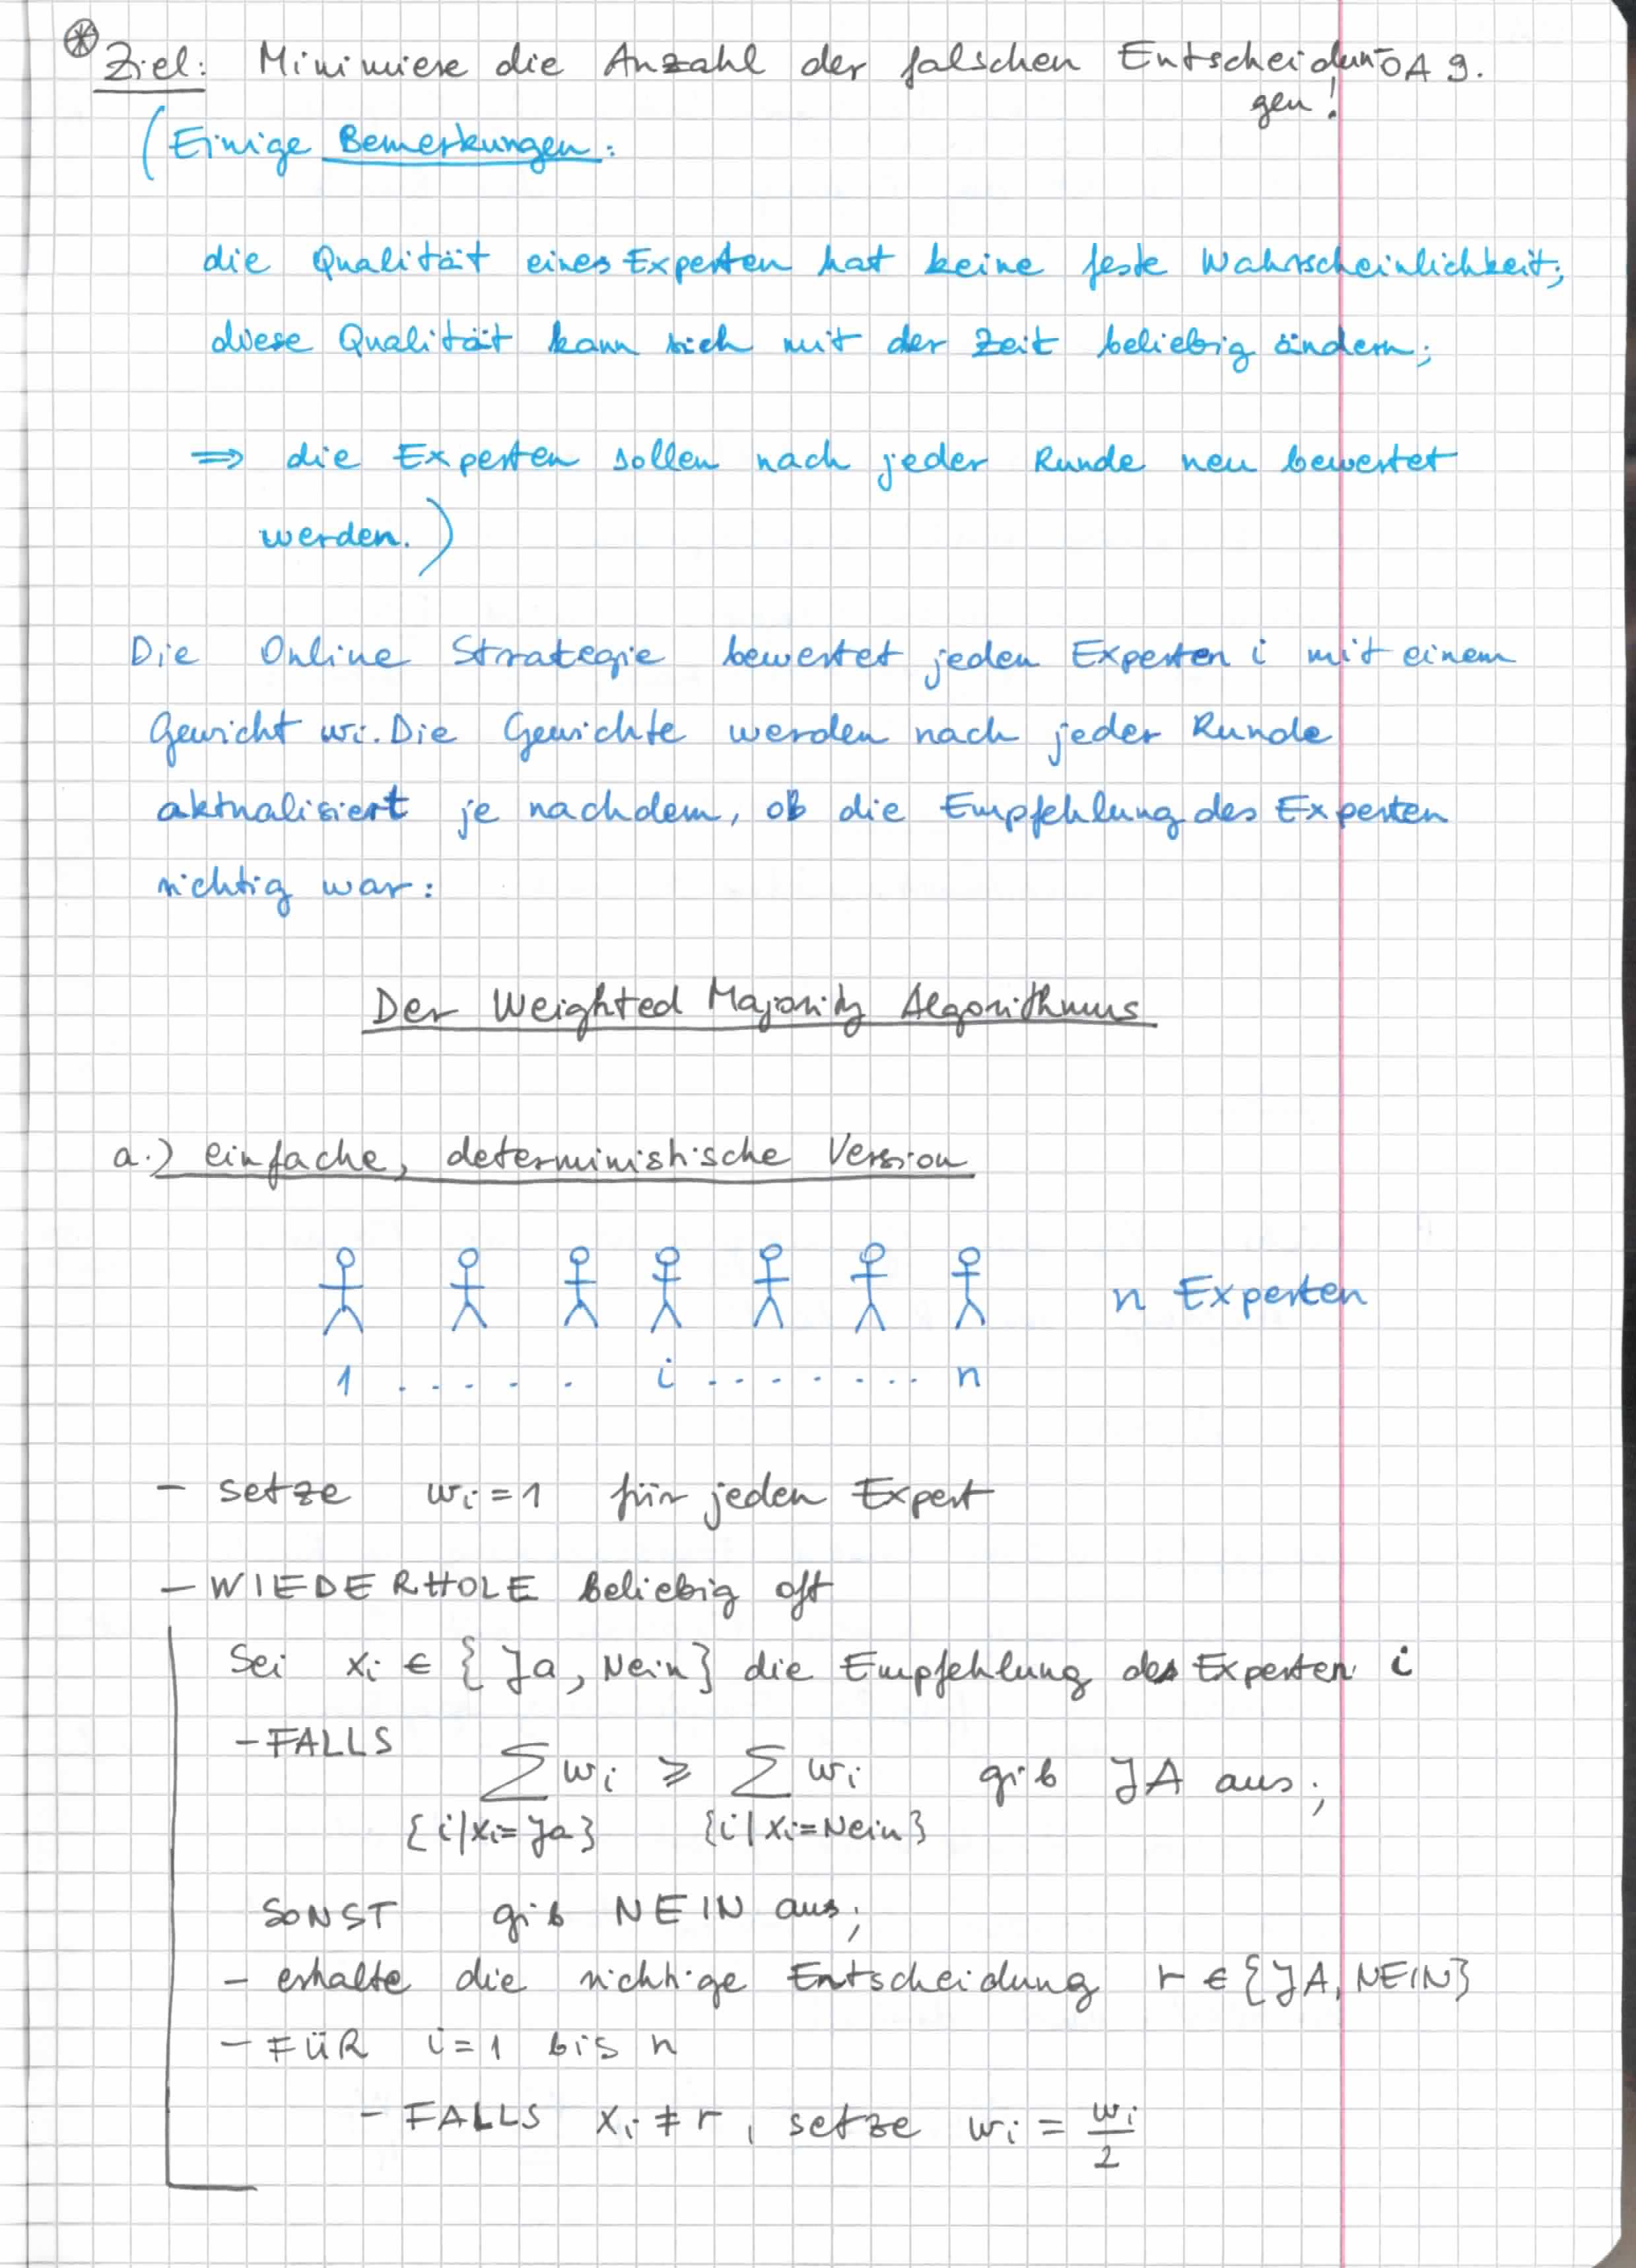 ⊛ Ziel: Minimiere die Anzahl der falschen Entscheidun- OA 9.
gen!
(Einige Bemerkungen:
die Qualität eines Experten hat keine feste Wahrscheinlichkeit;
diese Qualität kann sich mit der Zeit beliebig ändern;
⇒ die Experten sollen nach jeder Runde neu bewertet
werden.)
Die Online Strategie bewertet jeden Experten i mit einem
Gewicht wi. Die Gewichte werden nach jeder Runde
aktualisiert je nachdem, ob die Empfehlung des Experten
richtig war:
Der Weighted Majority Algorithmus
a.) einfache, deterministische Version
n Experten
1 . . . . . i . . . . . . . n
- setze wi = 1 für jeden Expert
- WIEDERHOLE beliebig oft
Sei xi ∈ {Ja, Nein} die Empfehlung des Experten i
- FALLS ∑ wi ≥ ∑ wi gib JA aus;
{i | xi = Ja} {i | xi = Nein}
SONST gib NEIN aus;
- erhalte die richtige Entscheidung r ∈ {JA, NEIN}
- FÜR i = 1 bis n
- FALLS xi ≠ r, setze wi = wi/2